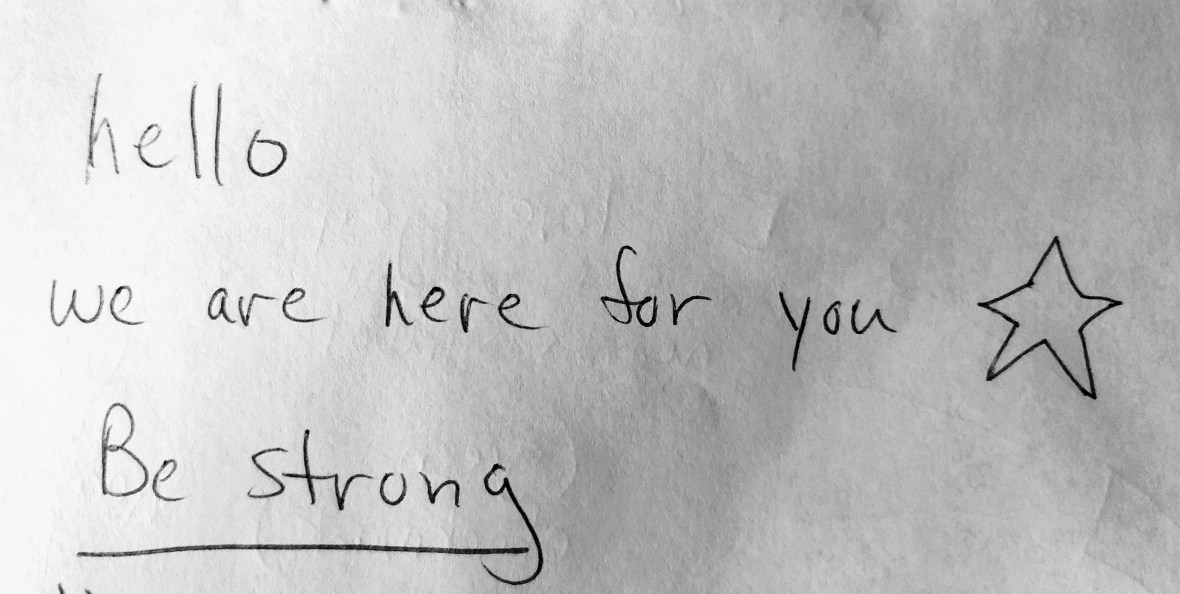 hello
we are here for you
Be strong